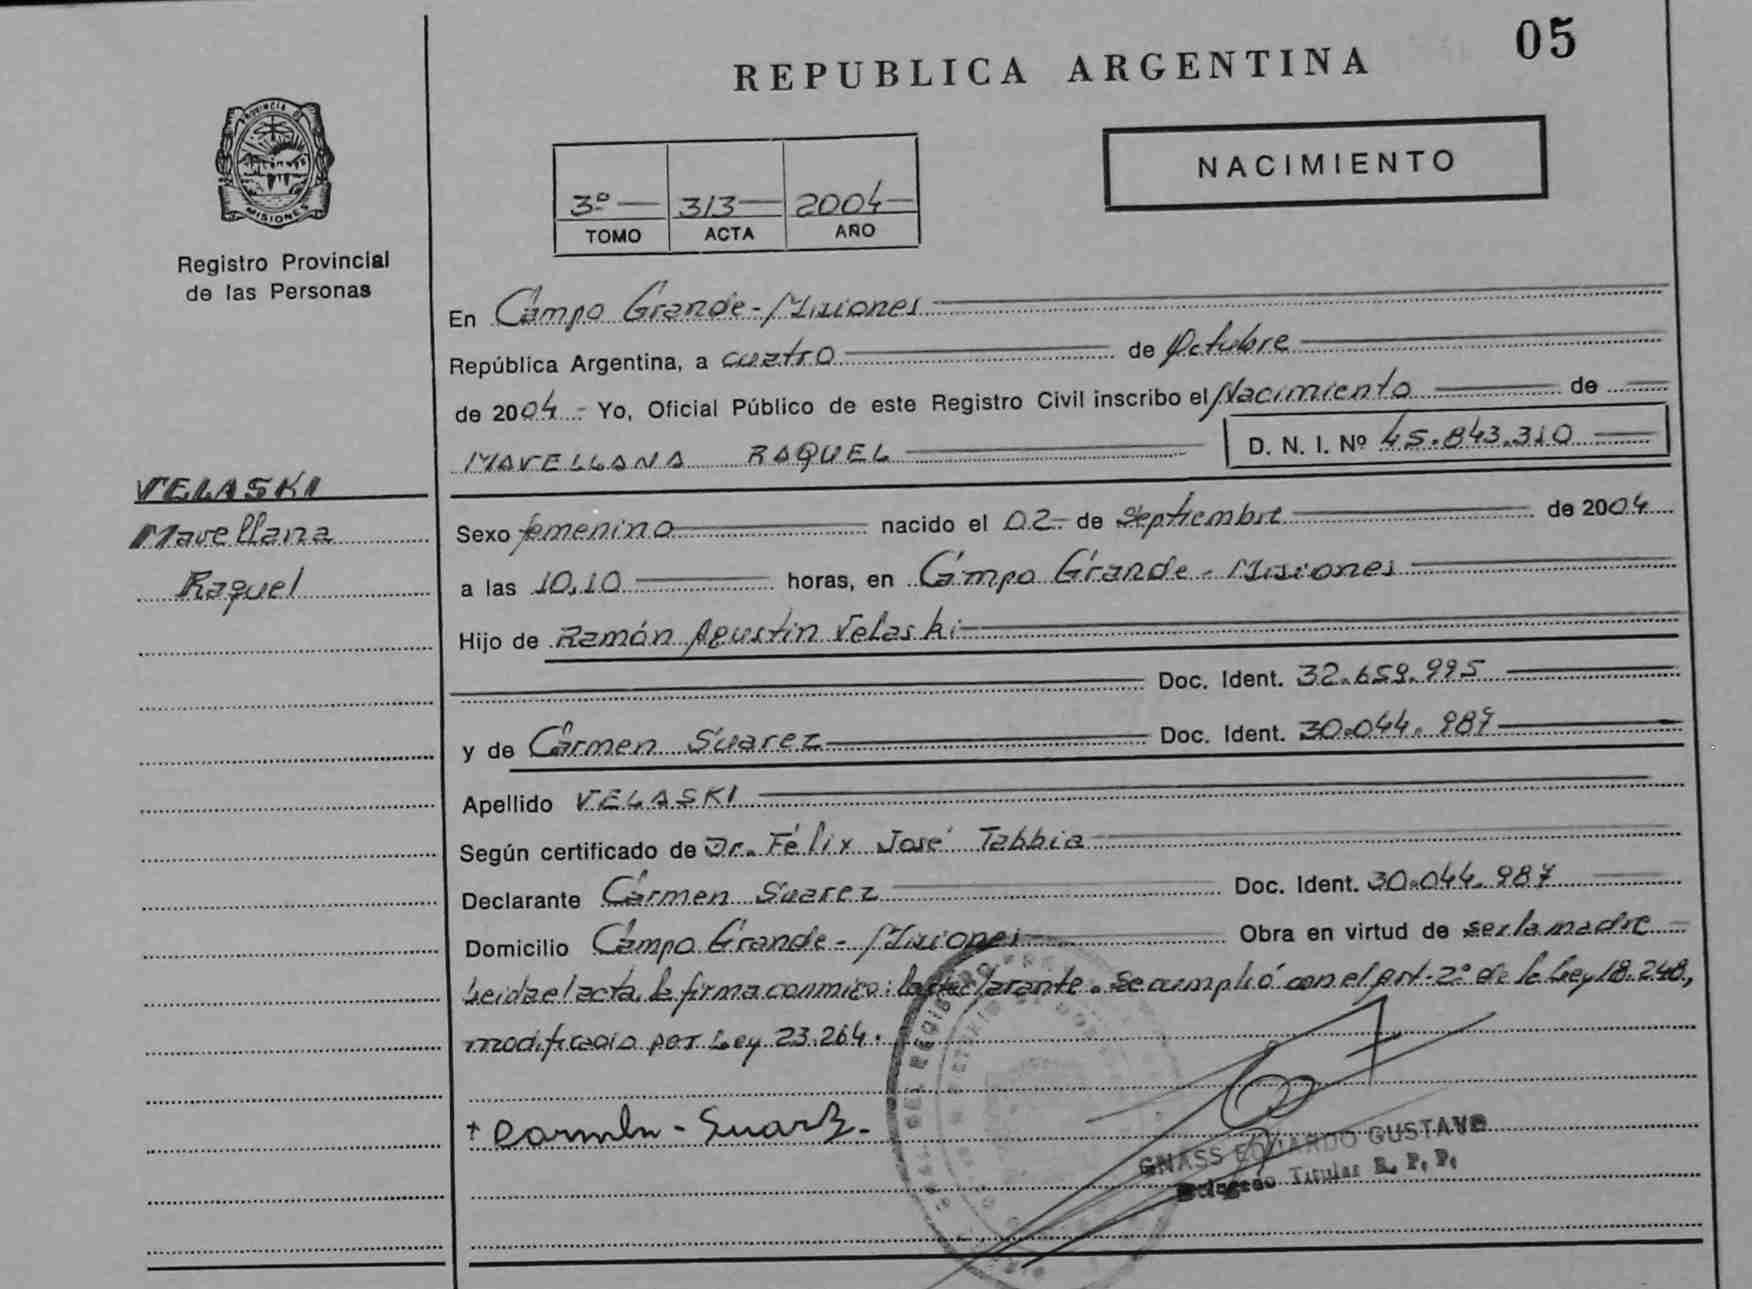 05
REPUBLICA ARGENTINA
PROVINCIA DE
MISIONES
Registro Provincial
de las Personas
3º 313 2004
TOMO ACTA AÑO
NACIMIENTO
En Campo Grande - Misiones
República Argentina, a cuatro de Octubre
de 2004 .- Yo, Oficial Público de este Registro Civil inscribo el Nacimiento de
MAVELLANA RAQUEL D. N. I. Nº 45.843.310
VELASKI
Mavellana
Raquel
Sexo femenino nacido el 02 de Septiembre de 2004
a las 10,10 horas, en Campo Grande - Misiones
Hijo de Ramón Agustin Velaski
Doc. Ident. 32.659.995
y de Carmen Suarez Doc. Ident. 30.044.987
Apellido VELASKI
Según certificado de Dr. Félix José Tabbia
Declarante Carmen Suarez Doc. Ident. 30.044.987
Domicilio Campo Grande - Misiones Obra en virtud de ser la madre
Leida el acta, la firma conmigo: la declarante. Se cumplió con el art. 2º de la Ley 18.248,
modificado por Ley 23.264.
+ Carmen - Suarez.
GNASS EDUARDO GUSTAVO
Delegado Titular R. P. P.